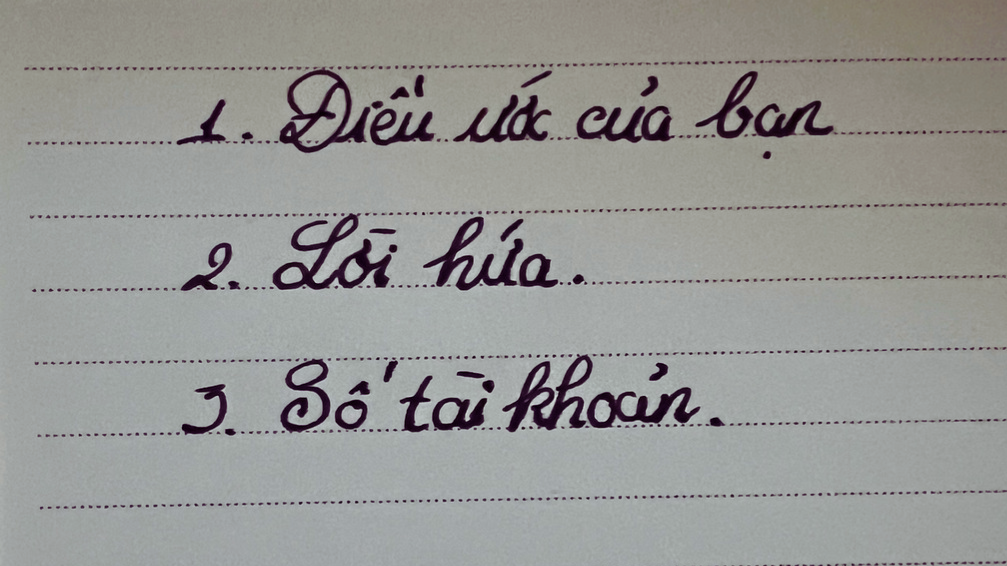 1. Điều ước của bạn
2. Lời hứa.
3. Số tài khoản.